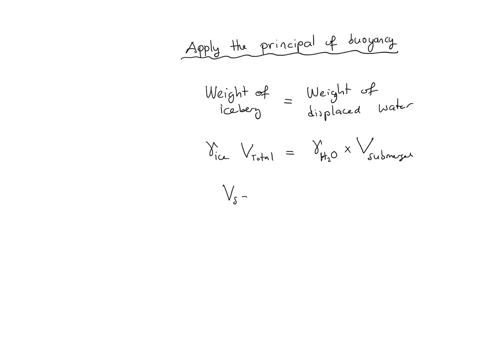 Apply the principal of buoyancy
Weight of iceberg = Weight of displaced water
γice VTotal = γH₂O × Vsubmerged
Vs -